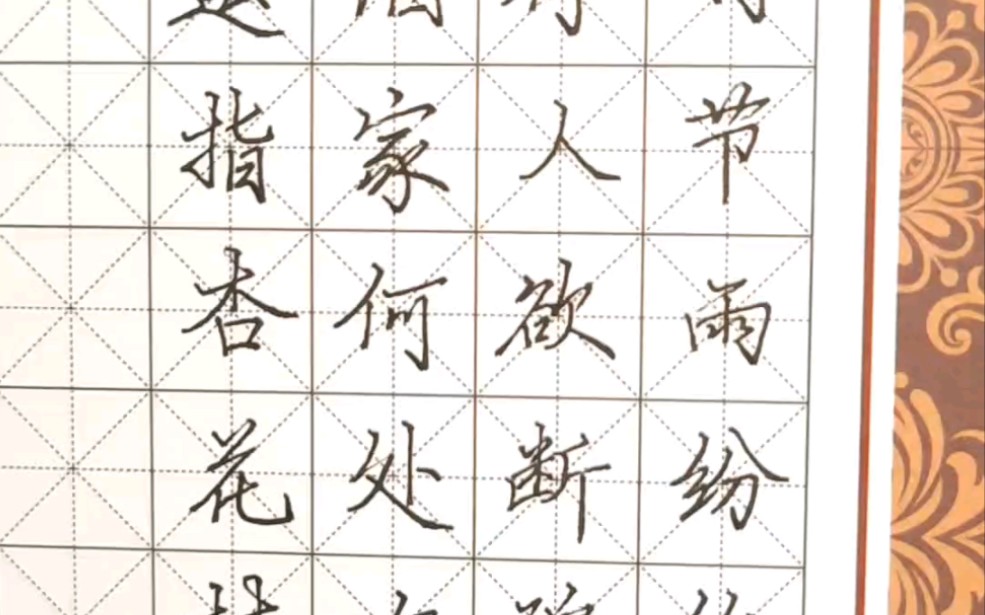 节雨纷
人欲断
家何处
指杏花